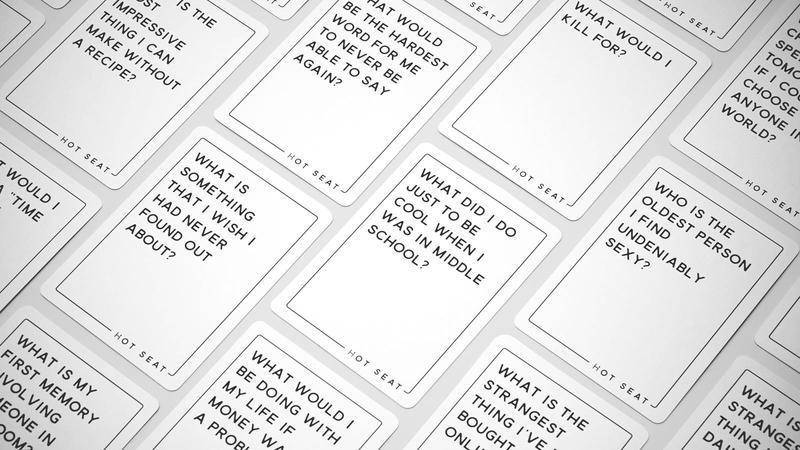 IS THE
IMPRESSIVE
THING I CAN
MAKE WITHOUT
A RECIPE?
HOT SEAT
WOULD
BE THE HARDEST
WORD FOR ME
TO NEVER BE
ABLE TO SAY
AGAIN?
HOT SEAT
SEAT
WHAT WOULD I
KILL FOR?
HOT SEAT
HOT SEAT
IF I
CHOOSE
ANYONE IN
WORLD?
HOT SEAT
WOULD I
A "TIME
WHAT IS
SOMETHING
THAT I WISH I
HAD NEVER
FOUND OUT
ABOUT?
HOT SEAT
WHAT DID I DO
JUST TO BE
COOL WHEN I
WAS IN MIDDLE
SCHOOL?
HOT SEAT
WHO IS THE
OLDEST PERSON
I FIND
UNDENIABLY
SEXY?
HOT SEAT
WHAT IS MY
FIRST MEMORY
IN
WHAT WOULD I
BE DOING WITH
MY LIFE IF
MONEY
A
WHAT IS THE
STRANGEST
THING I'VE
BOUGHT
WHAT IS
STRANGEST
THING